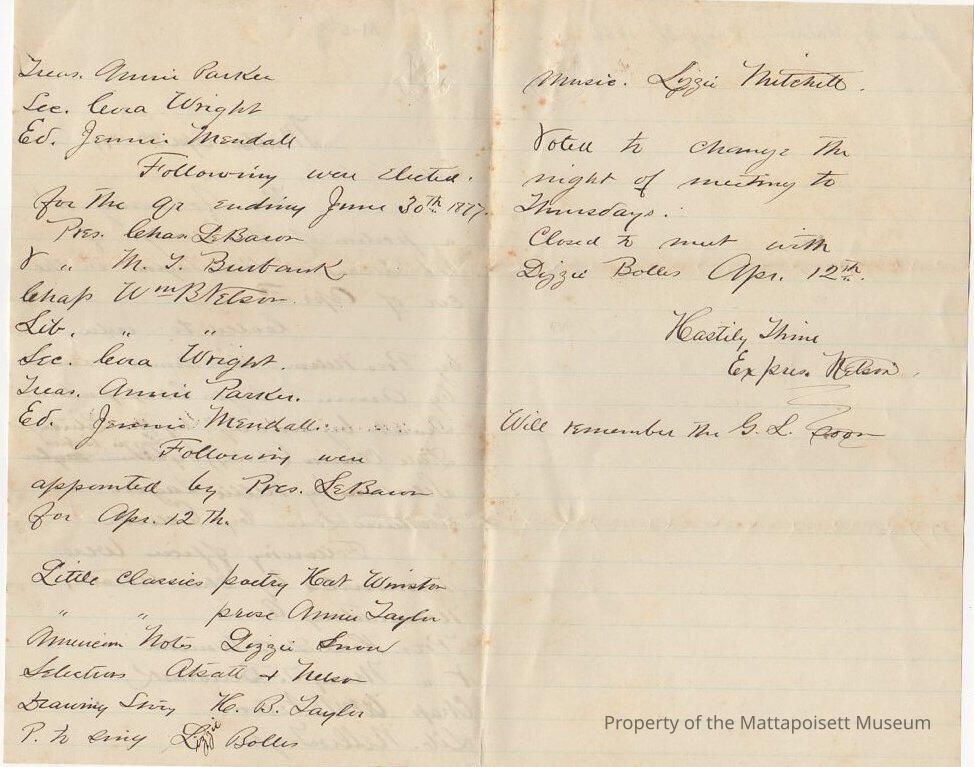 Treas. Annie Parker
Sec. Cora Wright
Ed. Jennie Mendall
Following were elected.
for the qr ending June 30th 1877.
Pres. Chas LeBaron
V " M. T. Burbank
Chap Wm B Nelson.
Lib. " "
Sec. Cora Wright.
Treas. Annie Parker.
Ed. Jennie Mendall.
Following were
appointed by Pres. LeBaron
for Apr. 12 Th.
Little Classics poetry Hat Winston
" " prose Annie Taylor
American Notes Lizzie Snow
Selections Atsatt & Nelson
Drawing Song H. B. Taylor
P. to sing Lizzie Bolles
Music. Lizzie Mitchell.
Voted to change the
night of meeting to
Thursdays.
Closed to meet with
Lizzie Bolles Apr. 12th.
Hastily Thine
Ex pres. Nelson.
Will remember the G. L. soon
Property of the Mattapoisett Museum